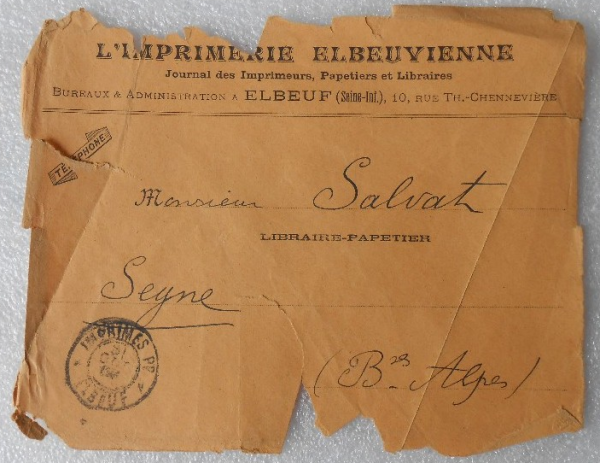 L'IMPRIMERIE ELBEUVIENNE
Journal des Imprimeurs, Papetiers et Libraires
BUREAUX & ADMINISTRATION A ELBEUF (Seine-Inf.), 10, RUE TH.-CHENNEVIÈRE
TÉLÉPHONE
Monsieur Salvat
LIBRAIRE-PAPETIER
Seyne
IMPRIMES PP
ELBEUF
(Bses Alpes)